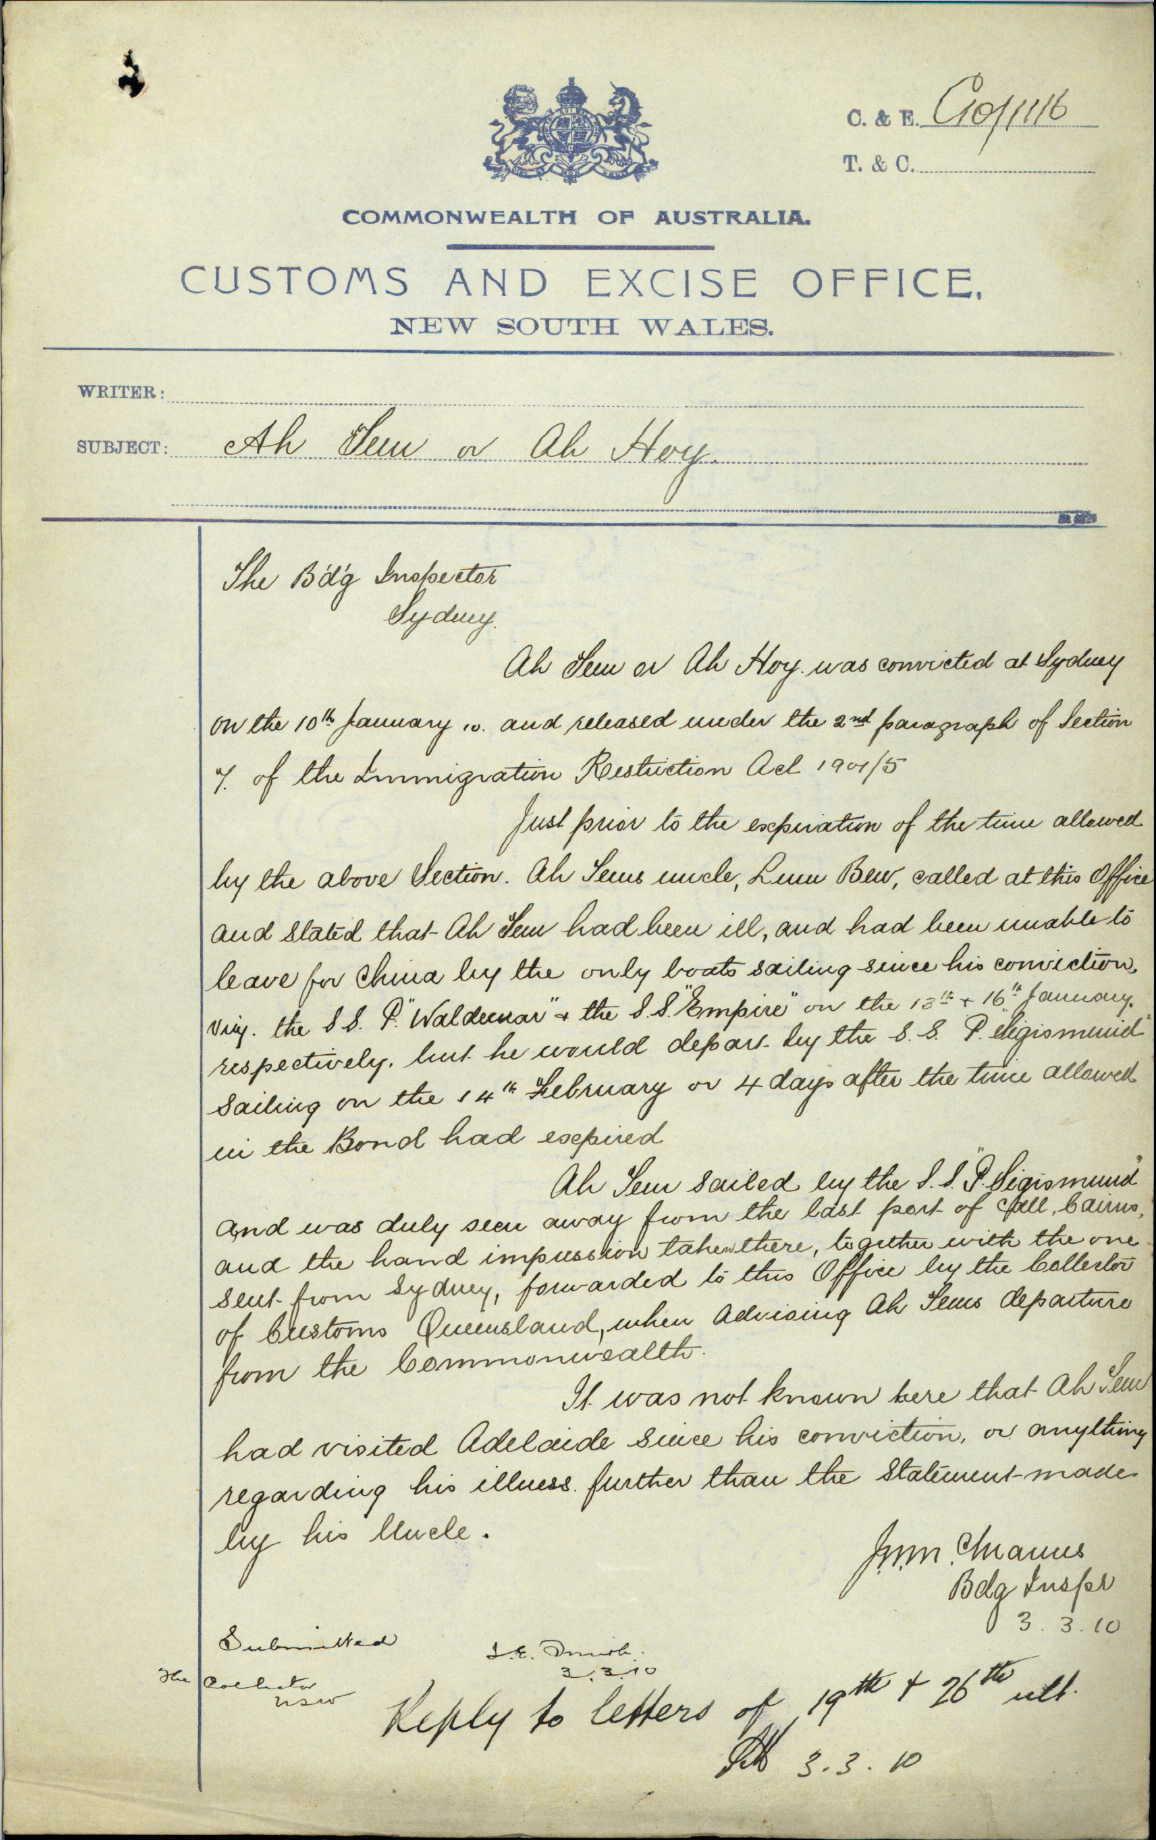 C. & E. C10/1116
T. & C.
COMMONWEALTH OF AUSTRALIA.
CUSTOMS AND EXCISE OFFICE,
NEW SOUTH WALES.
WRITER:
SUBJECT: Ah Sem or Ah Hoy.
The Bd'g Inspector
Sydney.
Ah Sem or Ah Hoy was convicted at Sydney
on the 10th January 10. and released under the 2nd paragraph of Section
7. of the Immigration Restriction Act 1901/5
Just prior to the expiration of the time allowed
by the above Section. Ah Sems uncle, Lum Bew, called at this Office
and stated that Ah Sem had been ill, and had been unable to
leave for China by the only boats sailing since his conviction,
viz. the S.S. P. "Waldemar" & the S.S. "Empire" on the 13th & 16th January.
respectively. but he would depart by the S.S. P. "Sigismund"
sailing on the 14th February or 4 days after the time allowed
in the Bond had expired
Ah Sem sailed by the S.S. "P. Sigismund"
and was duly seen away from the last port of call, Cairns,
and the hand impression taken there, together with the one
sent from Sydney, forwarded to this Office by the Collector
of Customs Queensland, when advising Ah Sems departure
from the Commonwealth.
It was not known here that Ah Sem
had visited Adelaide since his conviction, or anything
regarding his illness further than the statement made
by his Uncle.
Bdg Inspr
3.3.10
Submitted
3.3.10
The Collector
NSW
Reply to letters of 19th & 26th ult.
3.3.10